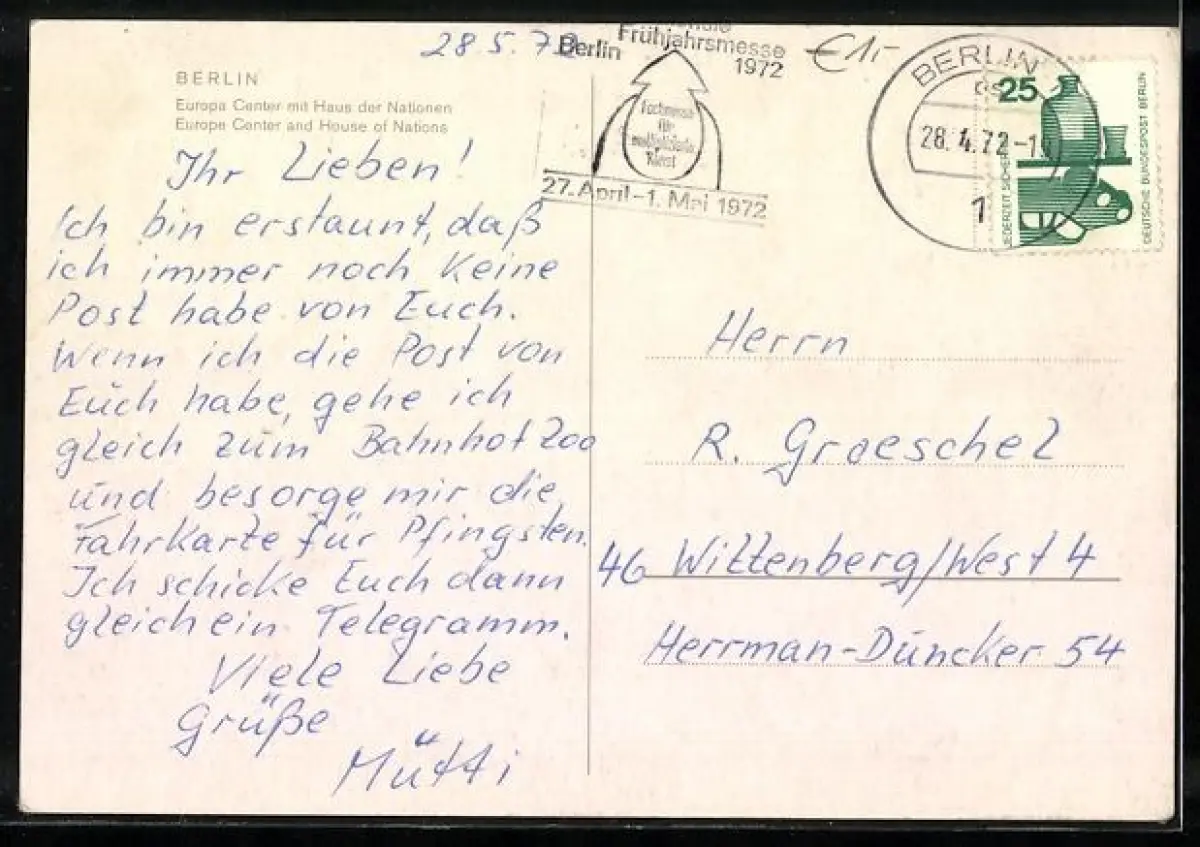 28.5.72
Frühjahrsmesse
Berlin
1972
27. April - 1. Mai 1972
€15
BERLIN
28.4.72-1
1
25
JEDERZEIT SICHERHEIT
DEUTSCHE BUNDESPOST BERLIN
BERLIN
Europa Center mit Haus der Nationen
Europe Center and House of Nations
Ihr Lieben!
Ich bin erstaunt, daß
ich immer noch keine
Post habe von Euch.
Wenn ich die Post von
Euch habe, gehe ich
gleich zum Bahnhof Zoo
und besorge mir die
Fahrkarte für Pfingsten.
Ich schicke Euch dann
gleich ein Telegramm.
Viele Liebe
Grüße
Mutti
Herrn
R. Graeschel
46 Wittenberg/West 4
Herrman-Duncker 54